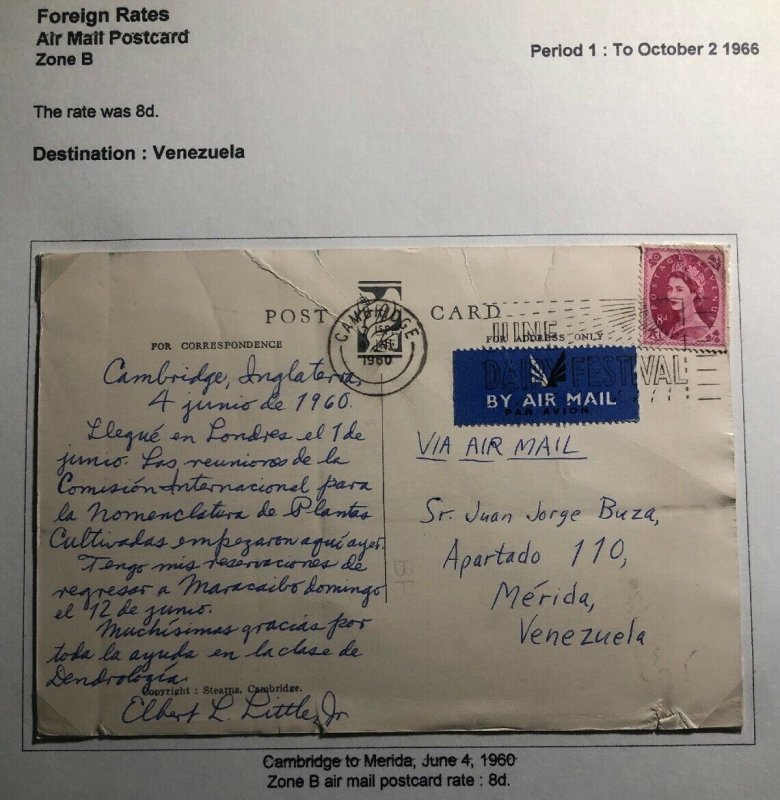 Foreign Rates
Air Mail Postcard
Zone B
Period 1 : To October 2 1966
The rate was 8d.
Destination : Venezuela
POST CARD
FOR CORRESPONDENCE
FOR ADDRESS ONLY
CAMBRIDGE
1960
JUNE
DAIRY FESTIVAL
POSTAGE REVENUE
8d
BY AIR MAIL
PAR AVION
Cambridge, Inglaterra,
4 junio de 1960.
Llegué en Londres el 1 de
junio. Las reuniones de la
Comisión Internacional para
la Nomenclatura de Plantas
Cultivadas empezaron aquí ayer.
Tengo mis reservaciones de
regresar a Maracaibo domingo
el 12 de junio.
Muchísimas gracias por
toda la ayuda en la clase de
Dendrología.
Copyright : Stearns, Cambridge.
Elbert L. Little, Jr
VIA AIR MAIL
Sr. Juan Jorge Buza,
Apartado 110,
Mérida,
Venezuela
Cambridge to Merida, June 4, 1960
Zone B air mail postcard rate : 8d.